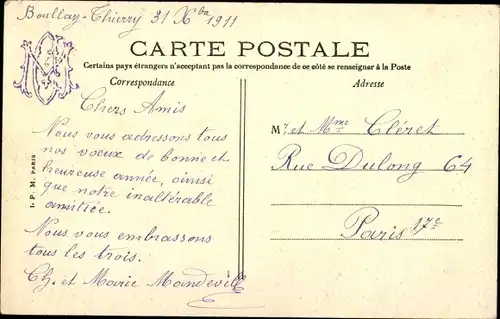 Boullay-Thierry 31 Xbre 1911
CARTE POSTALE
Certains pays étrangers n'acceptant pas la correspondance de ce côté se renseigner à la Poste
Correspondance
Adresse
Chers Amis
Nous vous adressons tous
nos voeux de bonne et
heureuse année, ainsi
que notre inaltérable
amitiée.
Nous vous embrassons
tous les trois.
Ch. et Marie Mandeville
Mr et Mme Cléret
Rue Dulong 64
Paris 17e
I. P. M. PARIS